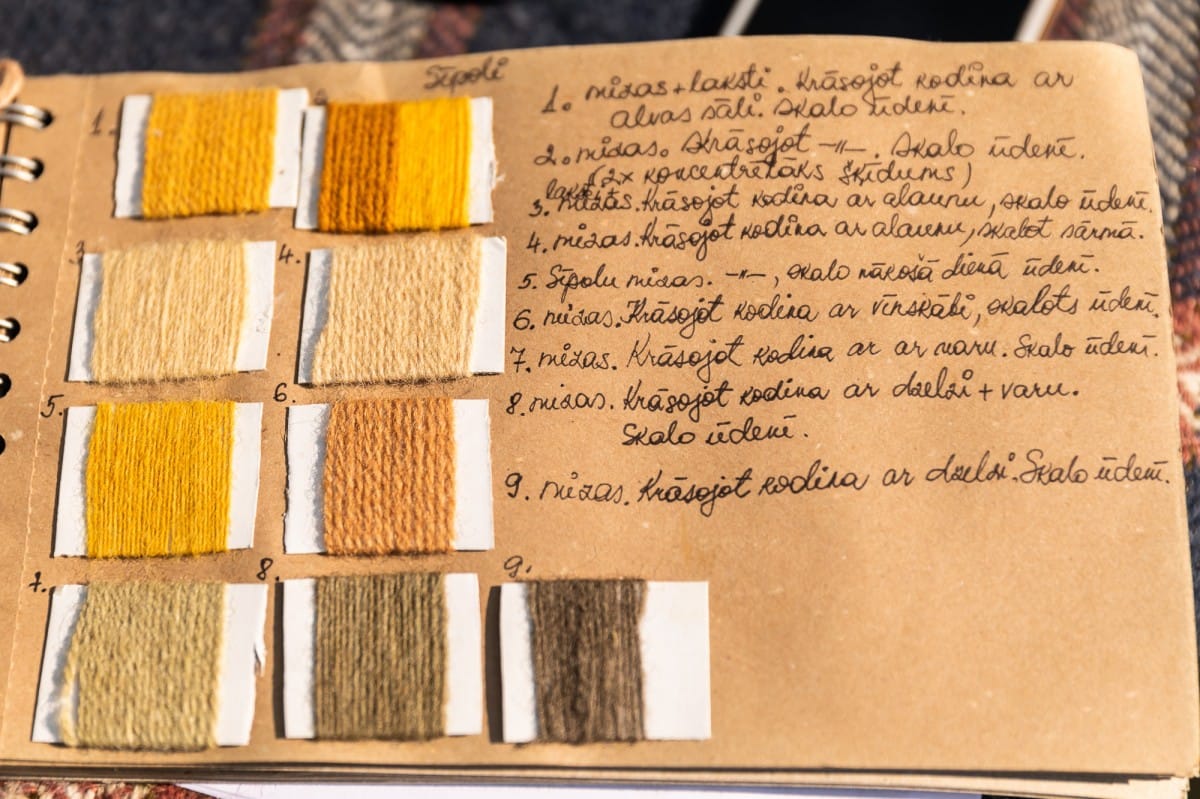 Sīpoli
1. mizas + laksti. Krāsojot kodina ar
alvas sāli. Skalo ūdenī.
2. mizas. Krāsojot —"—. Skalo ūdenī.
(2x koncentrētāks šķīdums)
3. mizas. Krāsojot kodina ar alaunu, skalo ūdenī.
4. mizas. Krāsojot kodina ar alaunu, skalot sārmā.
5. Sīpolu mizas. —"—, skalo nākošā dienā ūdenī.
6. mizas. Krāsojot kodina ar vīnskābi, skalots ūdenī.
7. mizas. Krāsojot kodina ar ar varu. Skalo ūdenī.
8. mizas. Krāsojot kodina ar dzelzi + varu.
Skalo ūdenī.
9. mizas. Krāsojot kodina ar dzelzi. Skalo ūdenī.
1.
3.
4.
5.
6.
7.
8.
9.